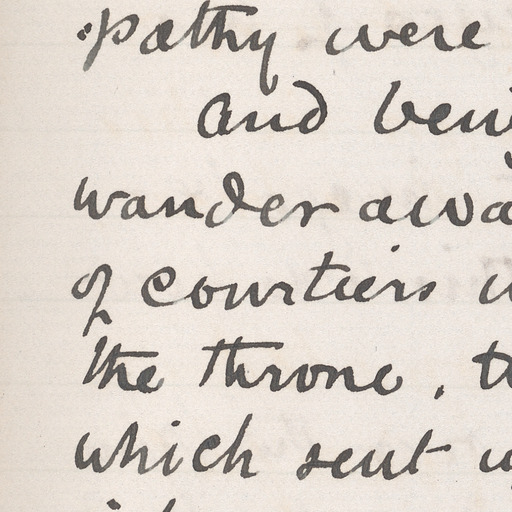 pathy were
and
wander
of courtiers
the throne,
which sent